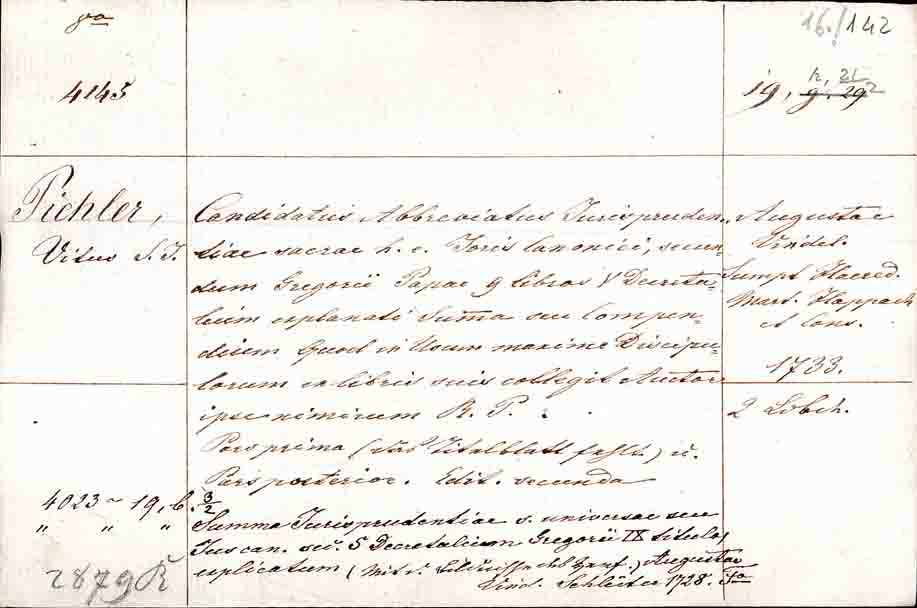 8vo
16./142
4145
19, g. 29
h, 21 2
Pichler,
Vitus S. J.
Candidatus Abbreviatus Jurispruden-
tiae sacrae h. e. Joris Canonici, secun-
dum Gregorii Papae 9 libros V Decreta-
lium explanati Suma seu Compen-
dium Quod in Usum maxime Discipu-
lorum ex libris suis collegit Auctor
ipse nimirum R. P.
Pars prima (das Titelblatt fehlt.) u.
Pars posterior. Edit. secunda
Augustae
Vindel.
Sumpt Haered.
Mart. Happach
et Cons.
1733.
2 Ldbch.
4023 19, b. 3/2
" " "
Summa Jurisprudentiae s. universae seu
Jus can. sec. 5 Decretalium Gregorii IX titulos
explicatum (Mit d. Bildnisse des Verf.) Augustae
Vind. Schlüter 1728. Fo
2879 R